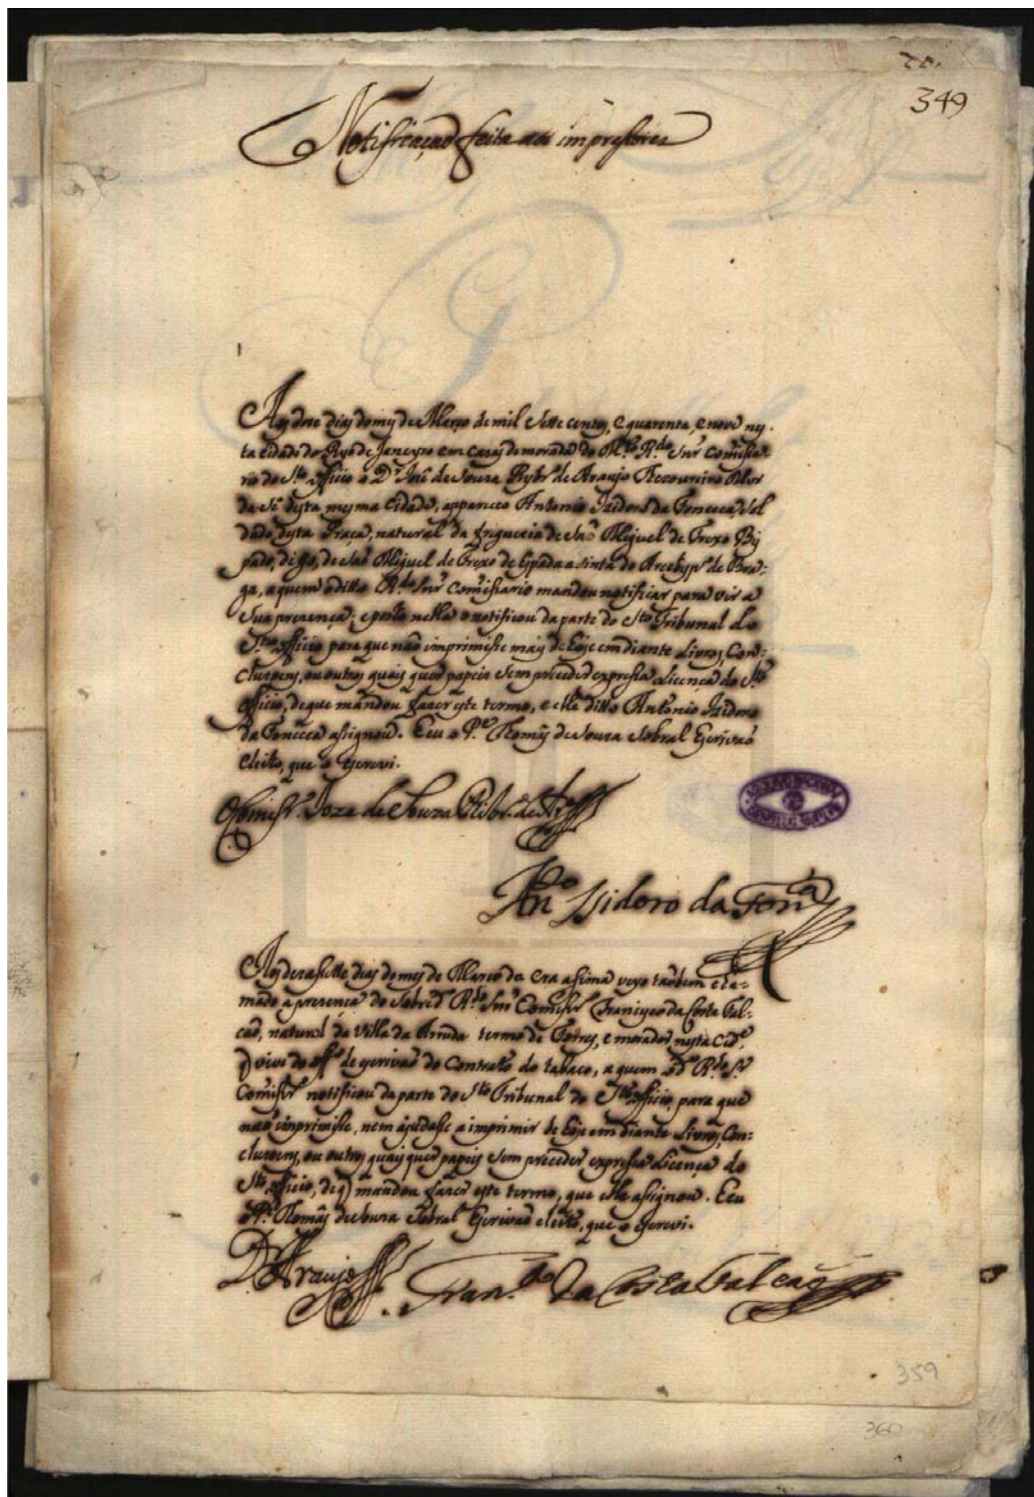 349
Notificação feita aos impressores
Aos doze dias do mes de Março de mil e sette centos, e quarenta, e nove nes-
ta cidade do Ryo de Janeyro em cazas de morada do M.to R.do Snr Comissa
rio do S.to officio o D.r Joze de Souza Rybr.o de Araujo Thezoureiro Mor
da Sé desta mesma cidade, appareceo Antonio Izidoro da Fonceca, Sol
dado desta Praça, natural da freguezia de São Miguel de Frexo Bis
pado, digo, de São Miguel de Frexo de Espada a sinta do Arcebysp.do de Bra-
ga, a quem o ditto R.do Snr Comissario mandou notificar para vir a
sua prezença; e posto nella o notificou da parte do S.to Tribunal do
S.to officio para que não imprimisse mais de hoje em diante Livros, Con-
cluzoens, ou outros quais quer papeis sem preceder expressa Licença do S.to
officio, de que mandou fazer este termo, e elle ditto Antonio Izidoro
da Fonceca assignou. E eu o P.e Thomás de Souza Sobral Escrivaõ
eleito, que o escrevi.
Comiss.o Joze de Souza Ribr.o de Ar.o
Ant.o Isidoro da Fon.ca
Aos dezasette dias do mes de Marco da era assima veyo também cha-
mado a prezença do sobred.o R.do Snr Comissr.o Francisco da Costa Fal-
caõ, natural da Villa da Arruda termo de Torres, e morador nesta Cid.e
q vive do off.o de escrivaõ do Contrato do tabaco, a quem o d.o R.do S.r
Comissr.o notificou da parte do S.to Tribunal do S.to officio, para que
não imprimisse, nem ajudasse a imprimir de hoje em diante Livros, Con-
cluzoens, ou outros quais quer papeis sem preceder expressa Licença do
S.to officio, de q mandou fazer este termo, que elle assignou. E eu
o P.e Thomás de Souza Sobral Escrivaõ eleito, que o escrevi.
D.r Araujo
Fran.co da Costa Falcaõ
359
360